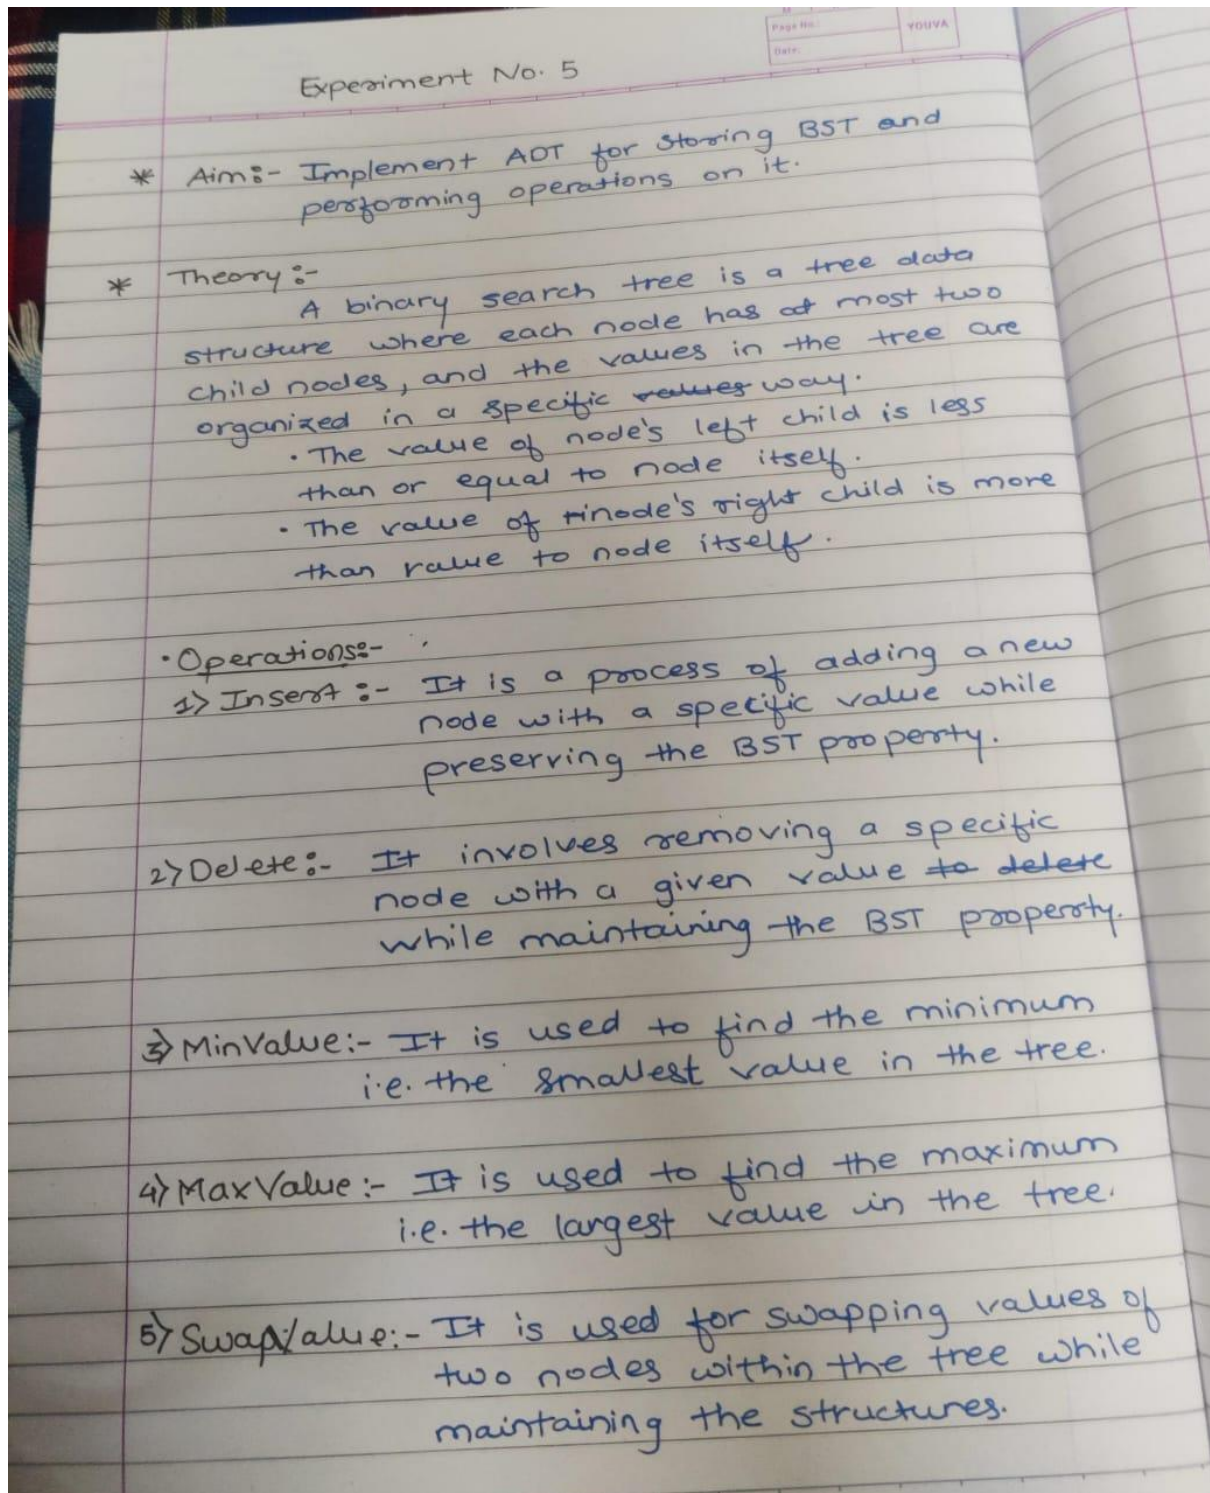 Page No.:
Date:
YOUVA
Experiment No. 5
* Aim:- Implement ADT for storing BST and
performing operations on it.
* Theory:-
A binary search tree is a tree data
structure where each node has at most two
child nodes, and the values in the tree are
organized in a specific values way.
• The value of node's left child is less
than or equal to node itself.
• The value of rinode's right child is more
than value to node itself.
• Operations:-
1) Insert :- It is a process of adding a new
node with a specific value while
preserving the BST property.
2) Delete:- It involves removing a specific
node with a given value to delete
while maintaining the BST property.
3) MinValue:- It is used to find the minimum
i.e. the smallest value in the tree.
4) MaxValue:- It is used to find the maximum
i.e. the largest value in the tree.
5) SwapValue:- It is used for swapping values of
two nodes within the tree while
maintaining the structures.